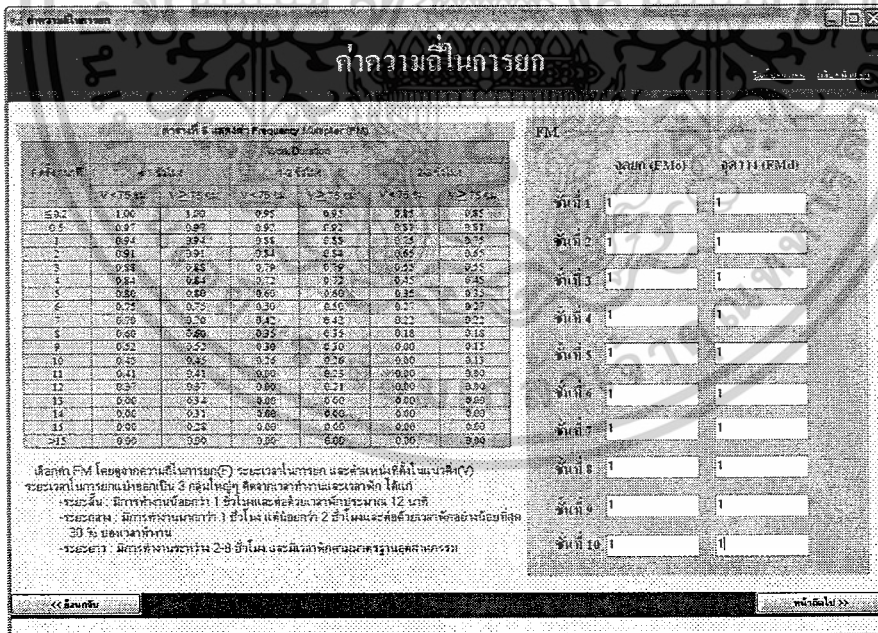 ค่าความถี่ในการยก
ค่าความถี่ในการยก
ตารางที่ 5 แสดงค่า Frequency Multiplier (FM)
V < 75 ซม. V ≥ 75 ซม. V < 75 ซม. V ≥ 75 ซม. V < 75 ซม. V ≥ 75 ซม.
≤0.2 1.00 1.00 0.95 0.95 0.85 0.85
0.5 0.97 0.97 0.92 0.92 0.81 0.81
1 0.94 0.94 0.88 0.88 0.75 0.75
2 0.91 0.91 0.84 0.84 0.65 0.65
3 0.88 0.88 0.79 0.79 0.55 0.55
4 0.84 0.84 0.72 0.72 0.45 0.45
5 0.80 0.80 0.60 0.60 0.35 0.35
6 0.75 0.75 0.50 0.50 0.27 0.27
7 0.70 0.70 0.42 0.42 0.22 0.22
8 0.60 0.60 0.35 0.35 0.18 0.18
9 0.52 0.52 0.30 0.30 0.00 0.15
10 0.45 0.45 0.26 0.26 0.00 0.13
11 0.41 0.41 0.00 0.23 0.00 0.00
12 0.37 0.37 0.00 0.21 0.00 0.00
13 0.00 0.34 0.00 0.00 0.00 0.00
14 0.00 0.31 0.00 0.00 0.00 0.00
15 0.00 0.28 0.00 0.00 0.00 0.00
>15 0.00 0.00 0.00 0.00 0.00 0.00
เลือกค่า FM โดยดูจากความถี่ในการยก(F) ระยะเวลาในการยก และตำแหน่งที่ตั้งในแนวดิ่ง(V)
ระยะเวลาในการยกแบ่งออกเป็น 3 กลุ่มใหญ่ๆ คิดจากเวลาทำงานและเวลาพัก ได้แก่
-ระยะสั้น : มีการทำงานน้อยกว่า 1 ชั่วโมงและต่อด้วยเวลาพักประมาณ 12 นาที
-ระยะกลาง : มีการทำงานมากกว่า 1 ชั่วโมง แต่น้อยกว่า 2 ชั่วโมงและต่อด้วยเวลาพักอย่างน้อยที่สุด
30 % ของเวลาทำงาน
-ระยะยาว : มีการทำงานระหว่าง 2-8 ชั่วโมง และมีเวลาพักตามมาตรฐานอุตสาหกรรม
FM
จุดยก (FMo) จุดวาง (FMd)
ชั้นที่ 1 1 1
ชั้นที่ 2 1 1
ชั้นที่ 3 1 1
ชั้นที่ 4 1 1
ชั้นที่ 5 1 1
ชั้นที่ 6 1 1
ชั้นที่ 7 1 1
ชั้นที่ 8 1 1
ชั้นที่ 9 1 1
ชั้นที่ 10 1 1
<< ย้อนกลับ
หน้าถัดไป >>